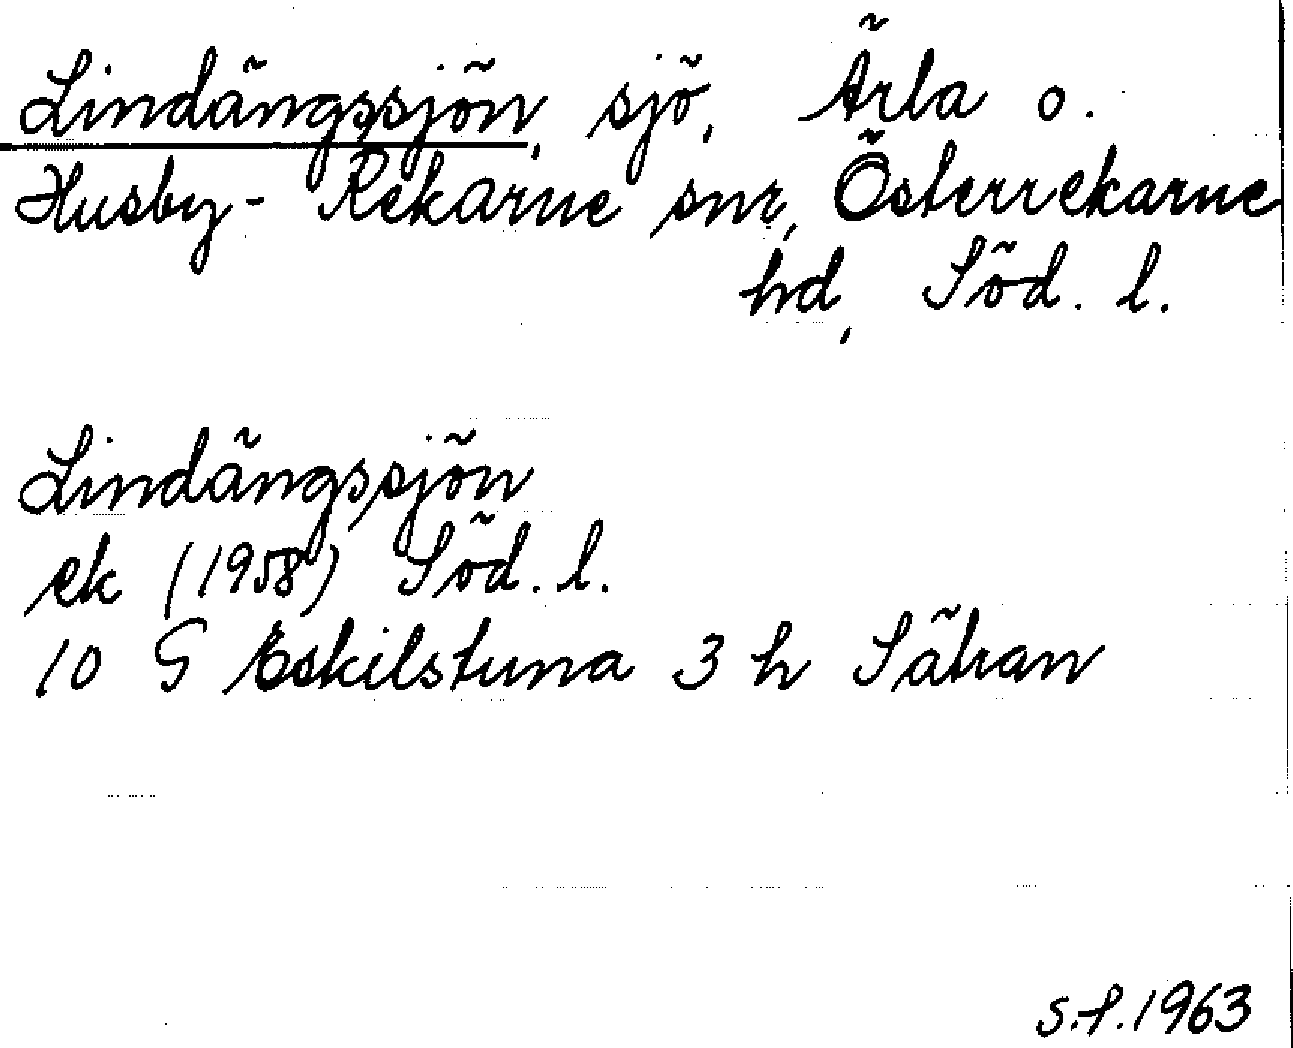 Lindängssjön, sjö, Ärla o.
Husby-Rekarne snr, Österrekarne
hd, Söd. l.
Lindängssjön
ek (1958) Söd. l.
10 G Eskilstuna 3 h Sätran
S.f. 1963